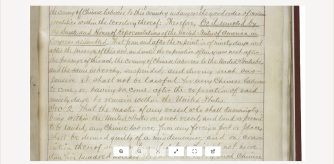 the coming of Chinese laborers to this country endangers the good order of certain
localities within the territory thereof: Therefore, Be it enacted by
the Senate and House of Representatives of the United States of America in
Congress assembled, That from and after the expiration of ninety days next
after the passage of this act, and until the expiration of ten years next after
the passage of this act, the coming of Chinese laborers to the United States be,
and the same is hereby, suspended; and during such sus-
pension it shall not be lawful for any Chinese laborer
to come, or having so come after the expiration of said
ninety days to remain within the United States.
Sec. 2. That the master of any vessel who shall knowingly
bring within the United States on such vessel, and land or permit
to be landed, any Chinese laborer, from any foreign port or place,
shall be deemed guilty of a misdemeanor, and on